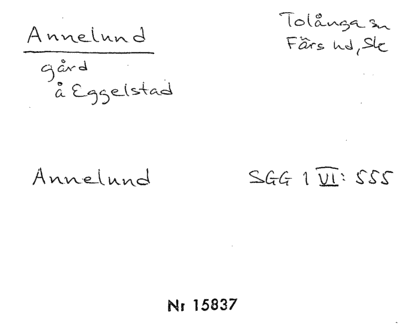 Annelund
Tolånga sn
Färs hd, Sk
gård
å Eggelstad
Annelund
SGG 1 VI: 555
Nr 15837